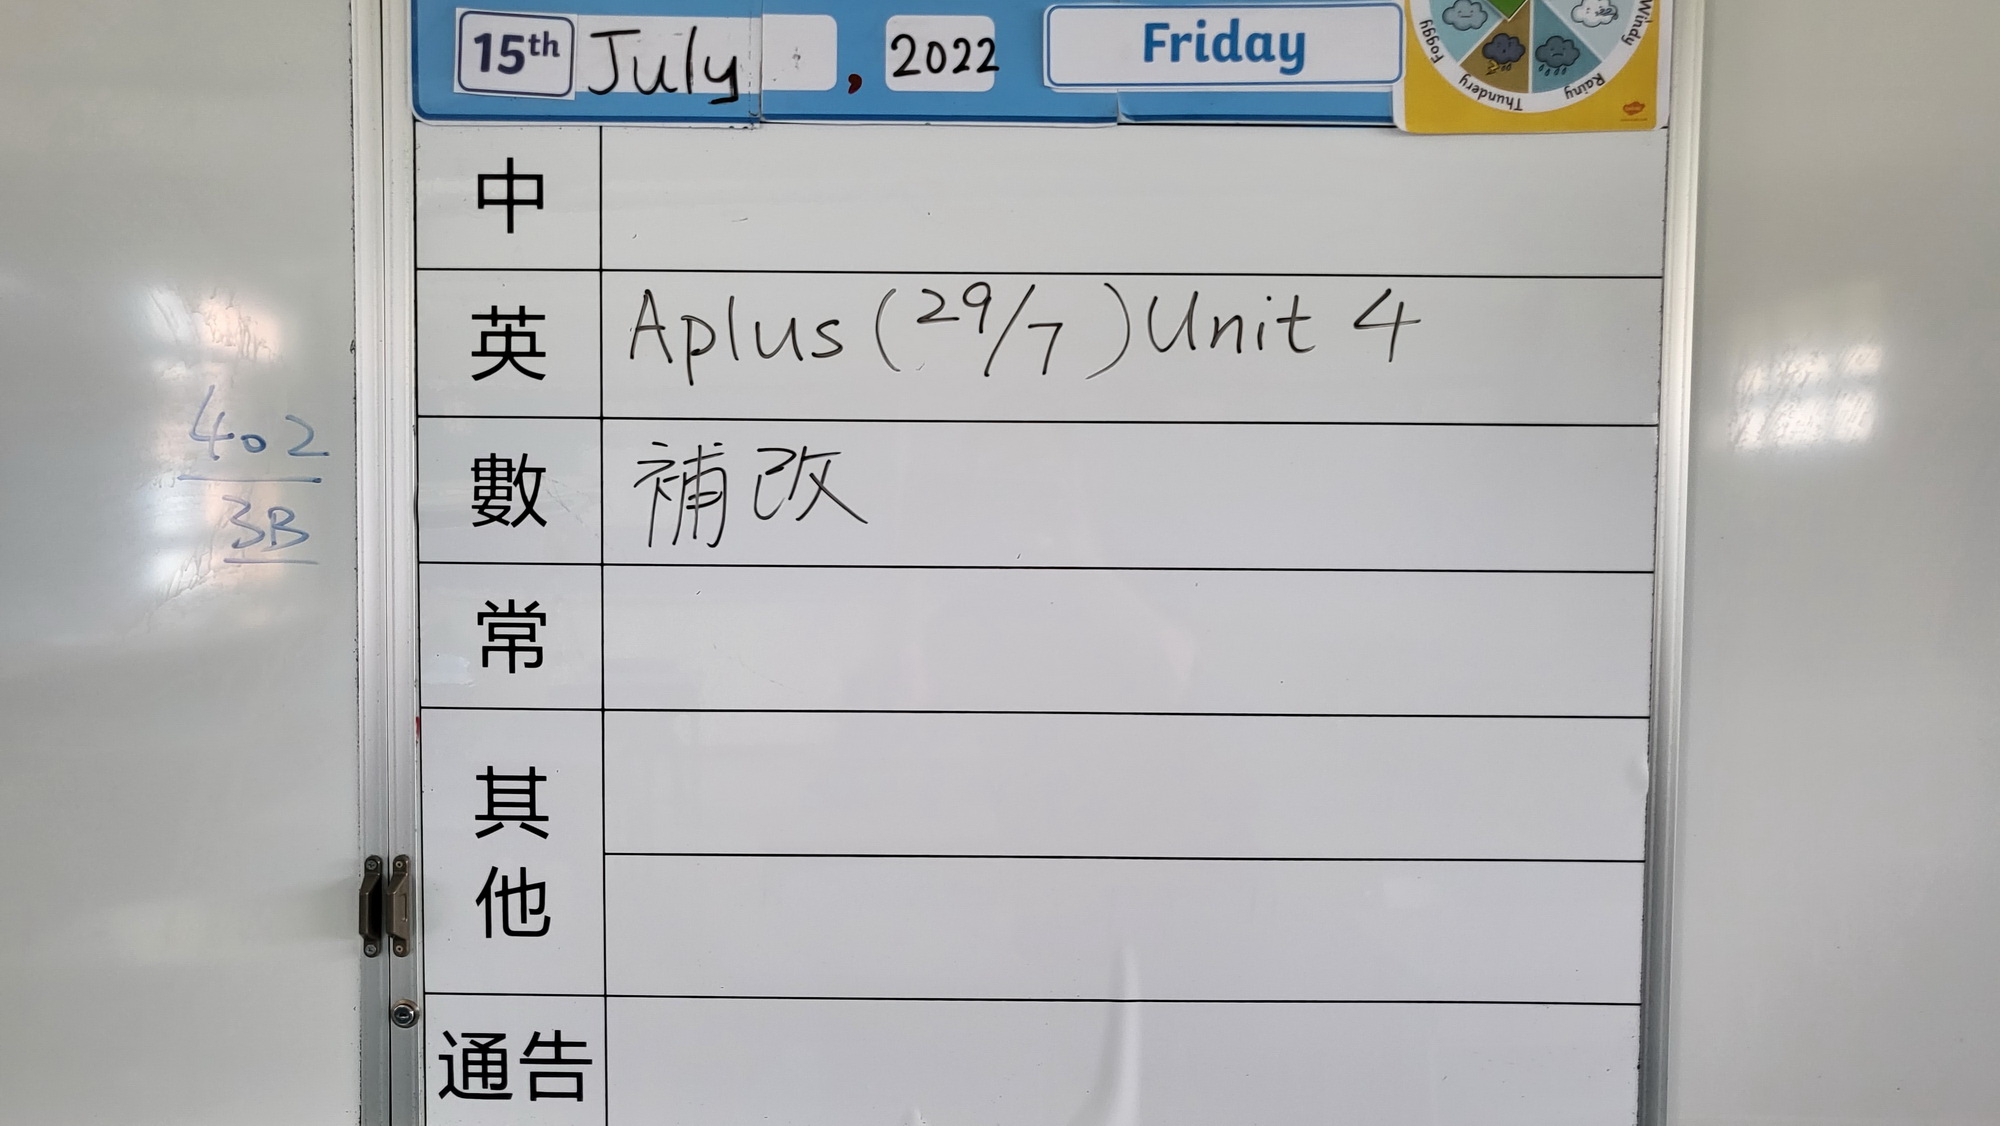 15th July , 2022 Friday
Foggy
Thundery
Rainy
Windy
中
英 Aplus (29/7) Unit 4
數 補改
常
其他
通告
402
3B